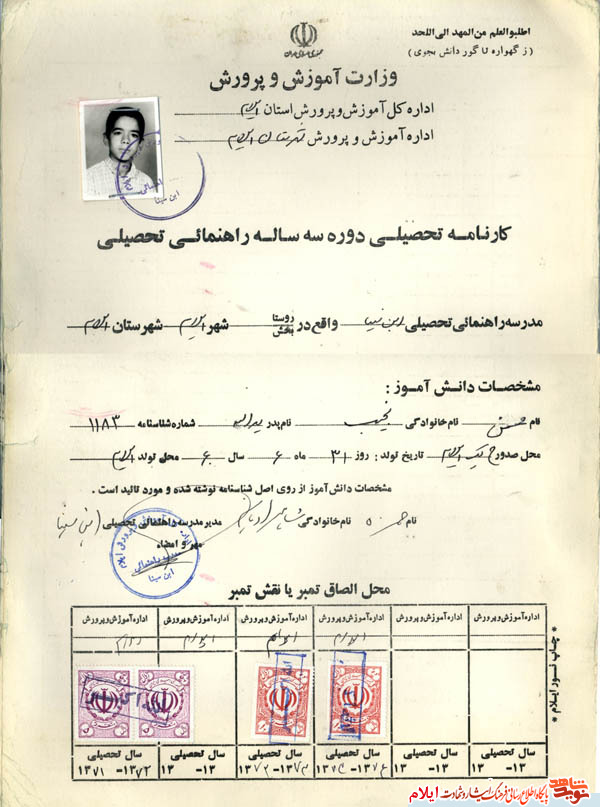 اطلبوالعلم من المهد الی اللحد
( ز گهواره تا گور دانش بجوی )
جمهوری اسلامی ایران
وزارت آموزش و پرورش
اداره کل آموزش و پرورش استان ایلام
اداره آموزش و پرورش شهرستان ایلام
کارنامه تحصیلی دوره سه ساله راهنمائی تحصیلی
مدرسه راهنمائی تحصیلی ابن سینا واقع در روستا بخش شهر ایلام شهرستان ایلام
مشخصات دانش آموز :
نام حسن نام خانوادگی نجیب نام پدر یداله شماره شناسنامه ۱۱۸۳
محل صدور ایلام تاریخ تولد : روز ۳۱ ماه ۶ سال ۶۰ محل تولد ایلام
مشخصات دانش آموز از روی اصل شناسنامه نوشته شده و مورد تائید است .
نام حمزه نام خانوادگی مدیر مدرسه راهنمائی تحصیلی ابن سینا
مهر و امضاء
ابن سینا
محل الصاق تمبر یا نقش تمبر
اداره آموزش و پرورش اداره آموزش و پرورش اداره آموزش و پرورش اداره آموزش و پرورش اداره آموزش و پرورش اداره آموزش و پرورش
ایلام ایلام ایلام
سال تحصیلی سال تحصیلی سال تحصیلی سال تحصیلی سال تحصیلی سال تحصیلی
۱۳ -۱۳ ۱۳ -۱۳
* چاپ نور ایلام *
نوید شاهد
پایگاه اطلاع رسانی فرهنگ ایثار و شهادت ایلام